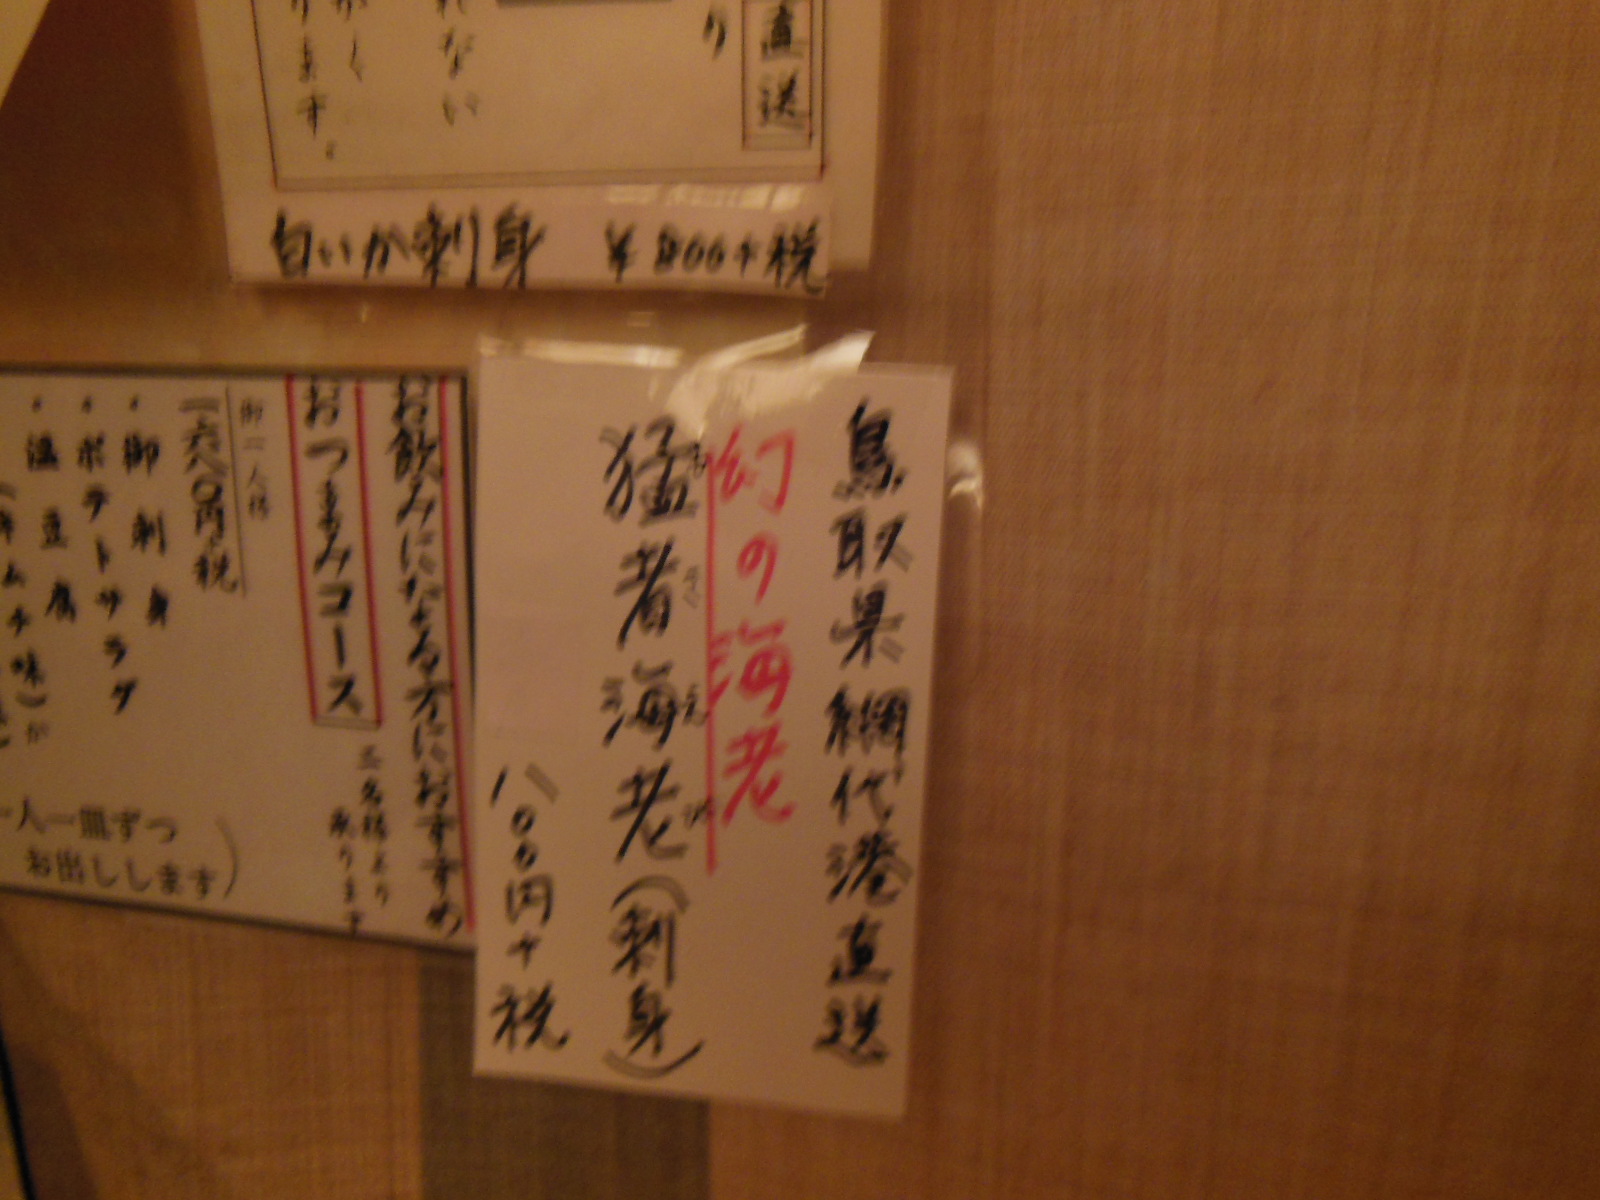 直送
り
れない
ります。
白いか刺身 ¥800+税
鳥取県網代港直送
幻の海老
猛者海老(刺身)
もさえび
八〇〇円+税
お飲みになる方におすすめ
おつまみコース
二名様より
承ります
御一人様
・御刺身
・ポテトサラダ
・温豆腐
一人一皿ずつ
お出しします)